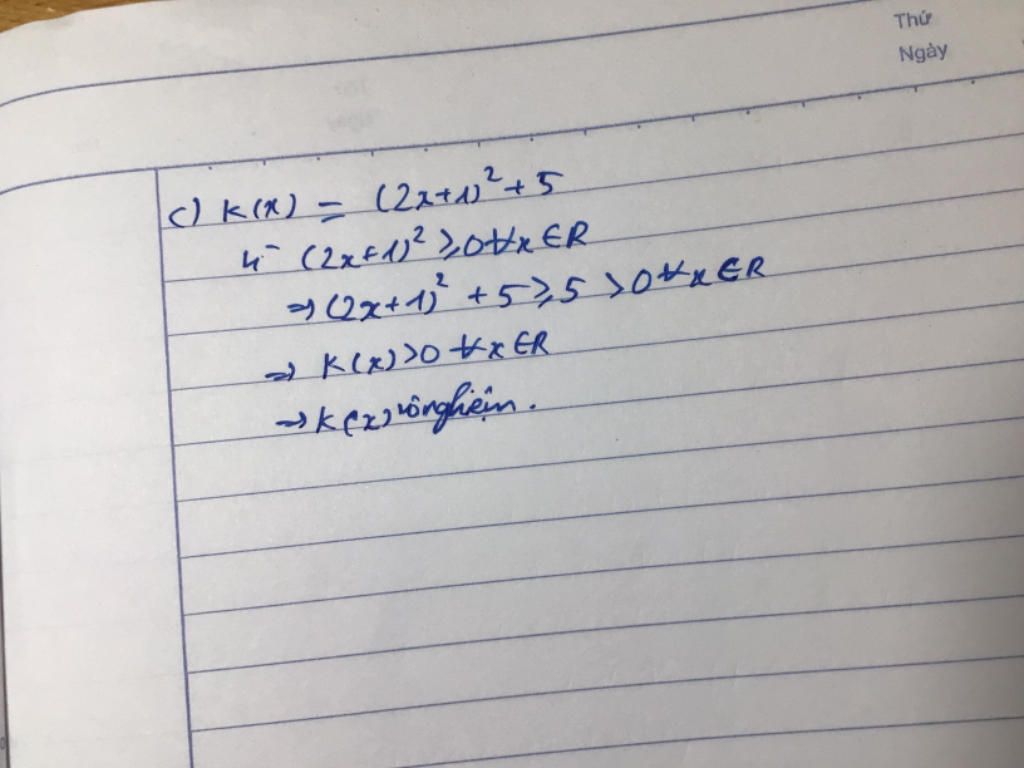 Thứ
Ngày
c) K(x) = (2x+1)² + 5
Vì (2x+1)² ≥ 0 ∀x ∈ R
⇒ (2x+1)² + 5 ≥ 5 > 0 ∀x ∈ R
⇒ K(x) > 0 ∀x ∈ R
→ K(x) vô nghiệm.